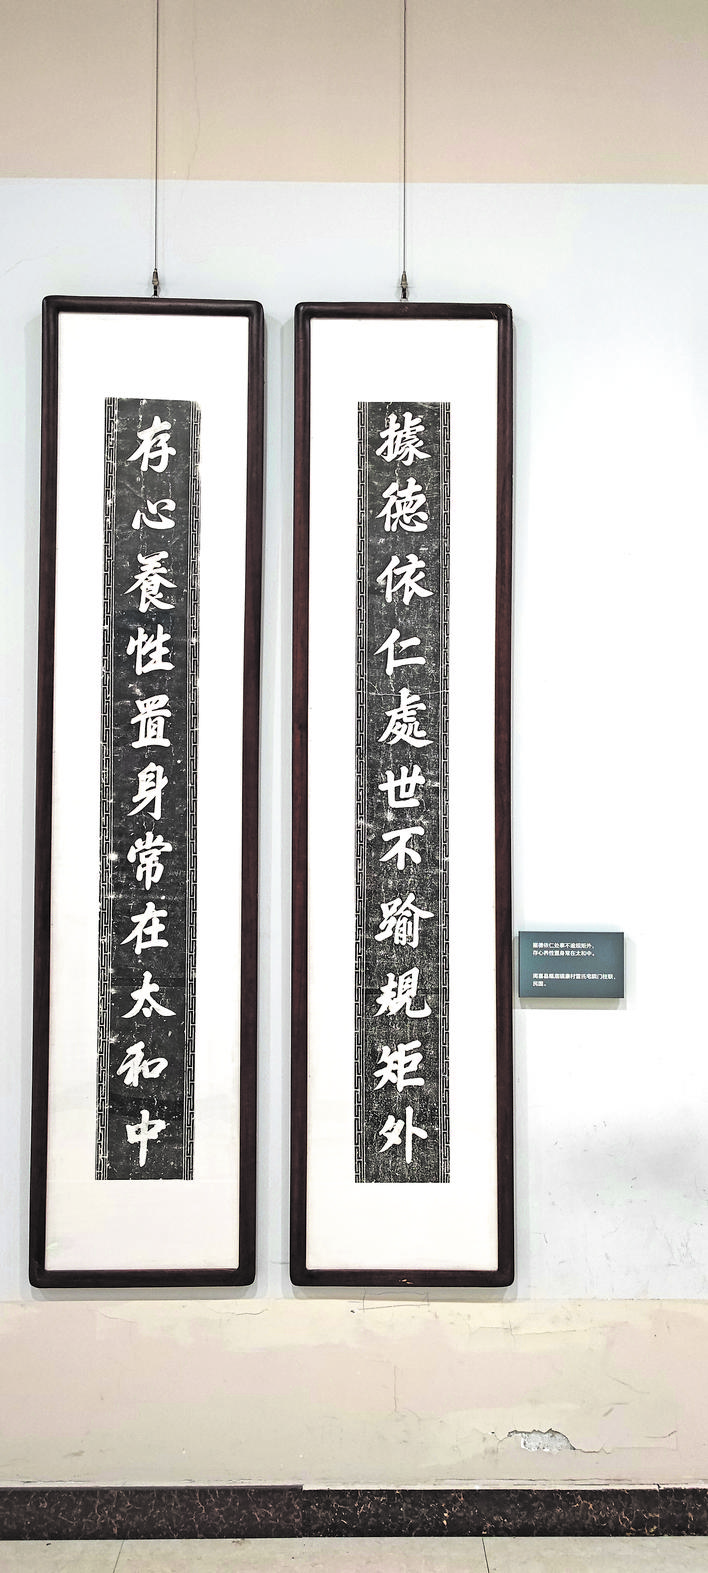 據德依仁處世不踰規矩外
存心養性置身常在太和中
据德依仁处事不逾规矩外，
存心养性置身常在太和中。
民国。